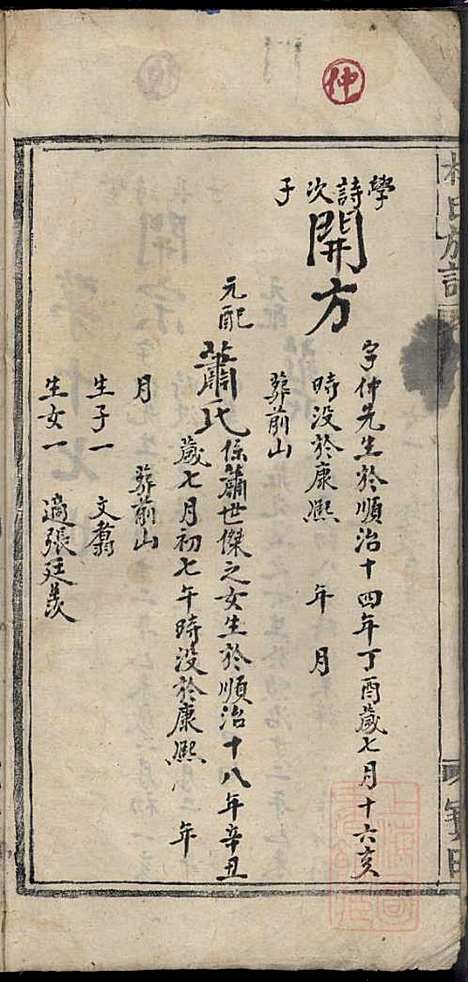 仲
學詩次子
開方
字仲先生於順治十四年丁酉歲七月十六亥
時没於康熙　年　月
葬前山
元配
蕭氏
係蕭世傑之女生於順治十八年辛丑
歲七月初七午時没於康熙　年
月　葬前山
生子一　文
生女一　適張廷羨
氏族